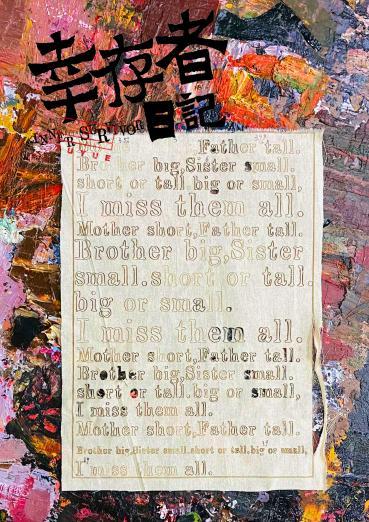 幸存者
日記
INNER SURVIVOR
Father tall.
Brother big,Sister small.
short or tall big or small,
I miss them all.
Mother short,Father tall.
Brother big,Sister
small.short or tall.
big or small.
I miss them all.
Mother short,Father tall.
Brother big,Sister small.
short or tall.big or small,
I miss them all.
Mother short,Father tall.
Brother big,Sister small.short or tall,big or small,
I miss them all.